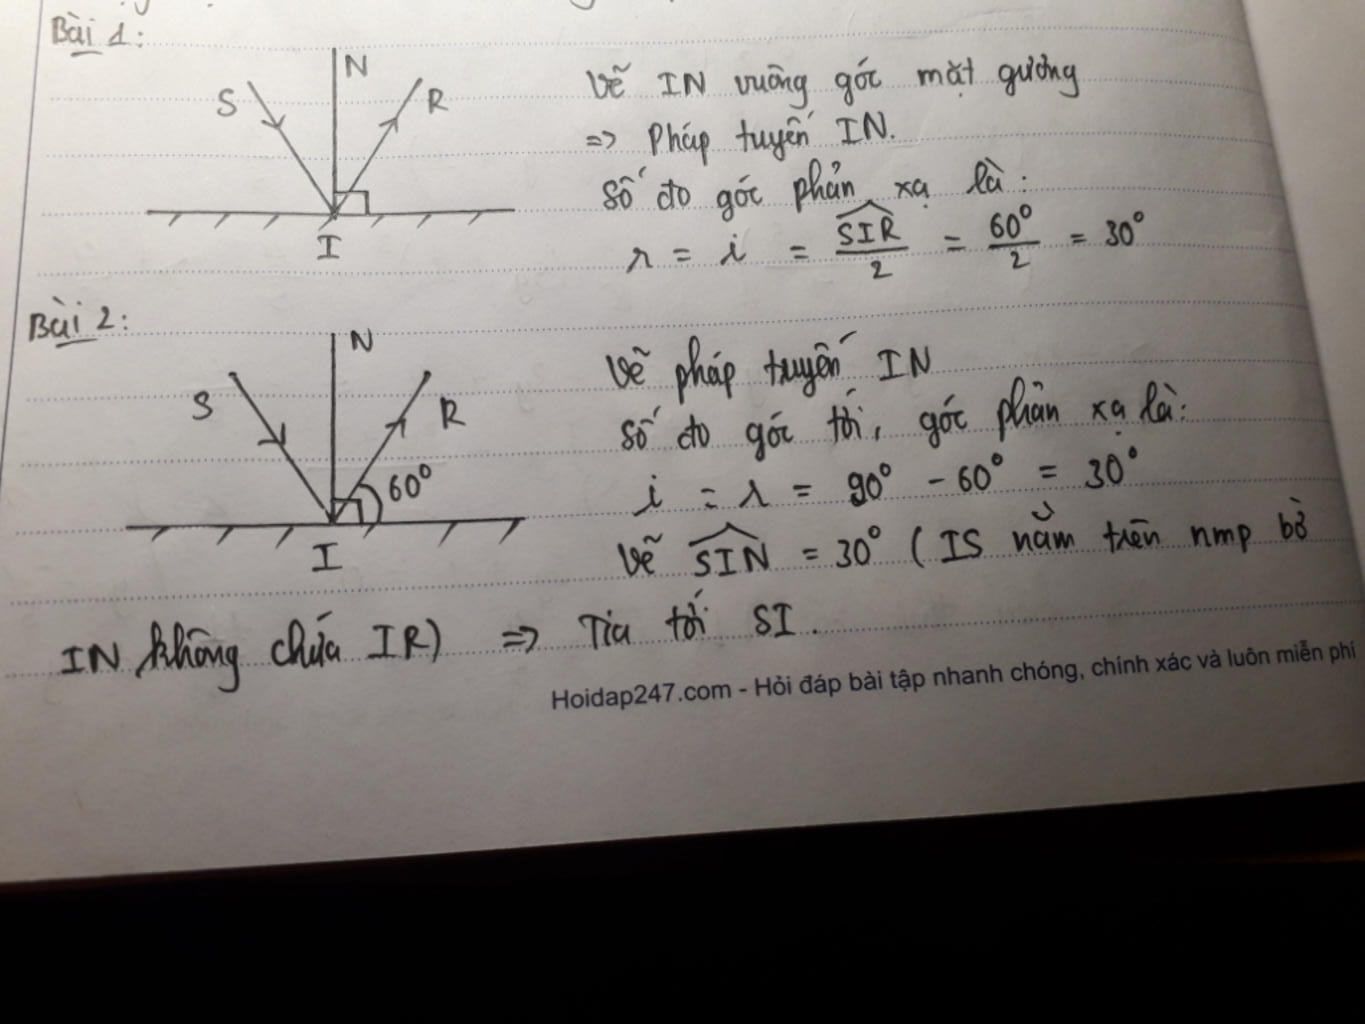 Bài 1:
N
S
R
I
Vẽ IN vuông góc mặt gương
=> Pháp tuyến IN.
Số đo góc phản xạ là:
r = i = SIR/2 = 60°/2 = 30°
Bài 2:
N
S
R
60°
I
Vẽ pháp tuyến IN
Số đo góc tới, góc phản xạ là:
i = r = 90° - 60° = 30°
Vẽ SIN = 30° (IS nằm trên nmp bờ
IN không chứa IR) => Tia tới SI.
Hoidap247.com - Hỏi đáp bài tập nhanh chóng, chính xác và luôn miễn phí